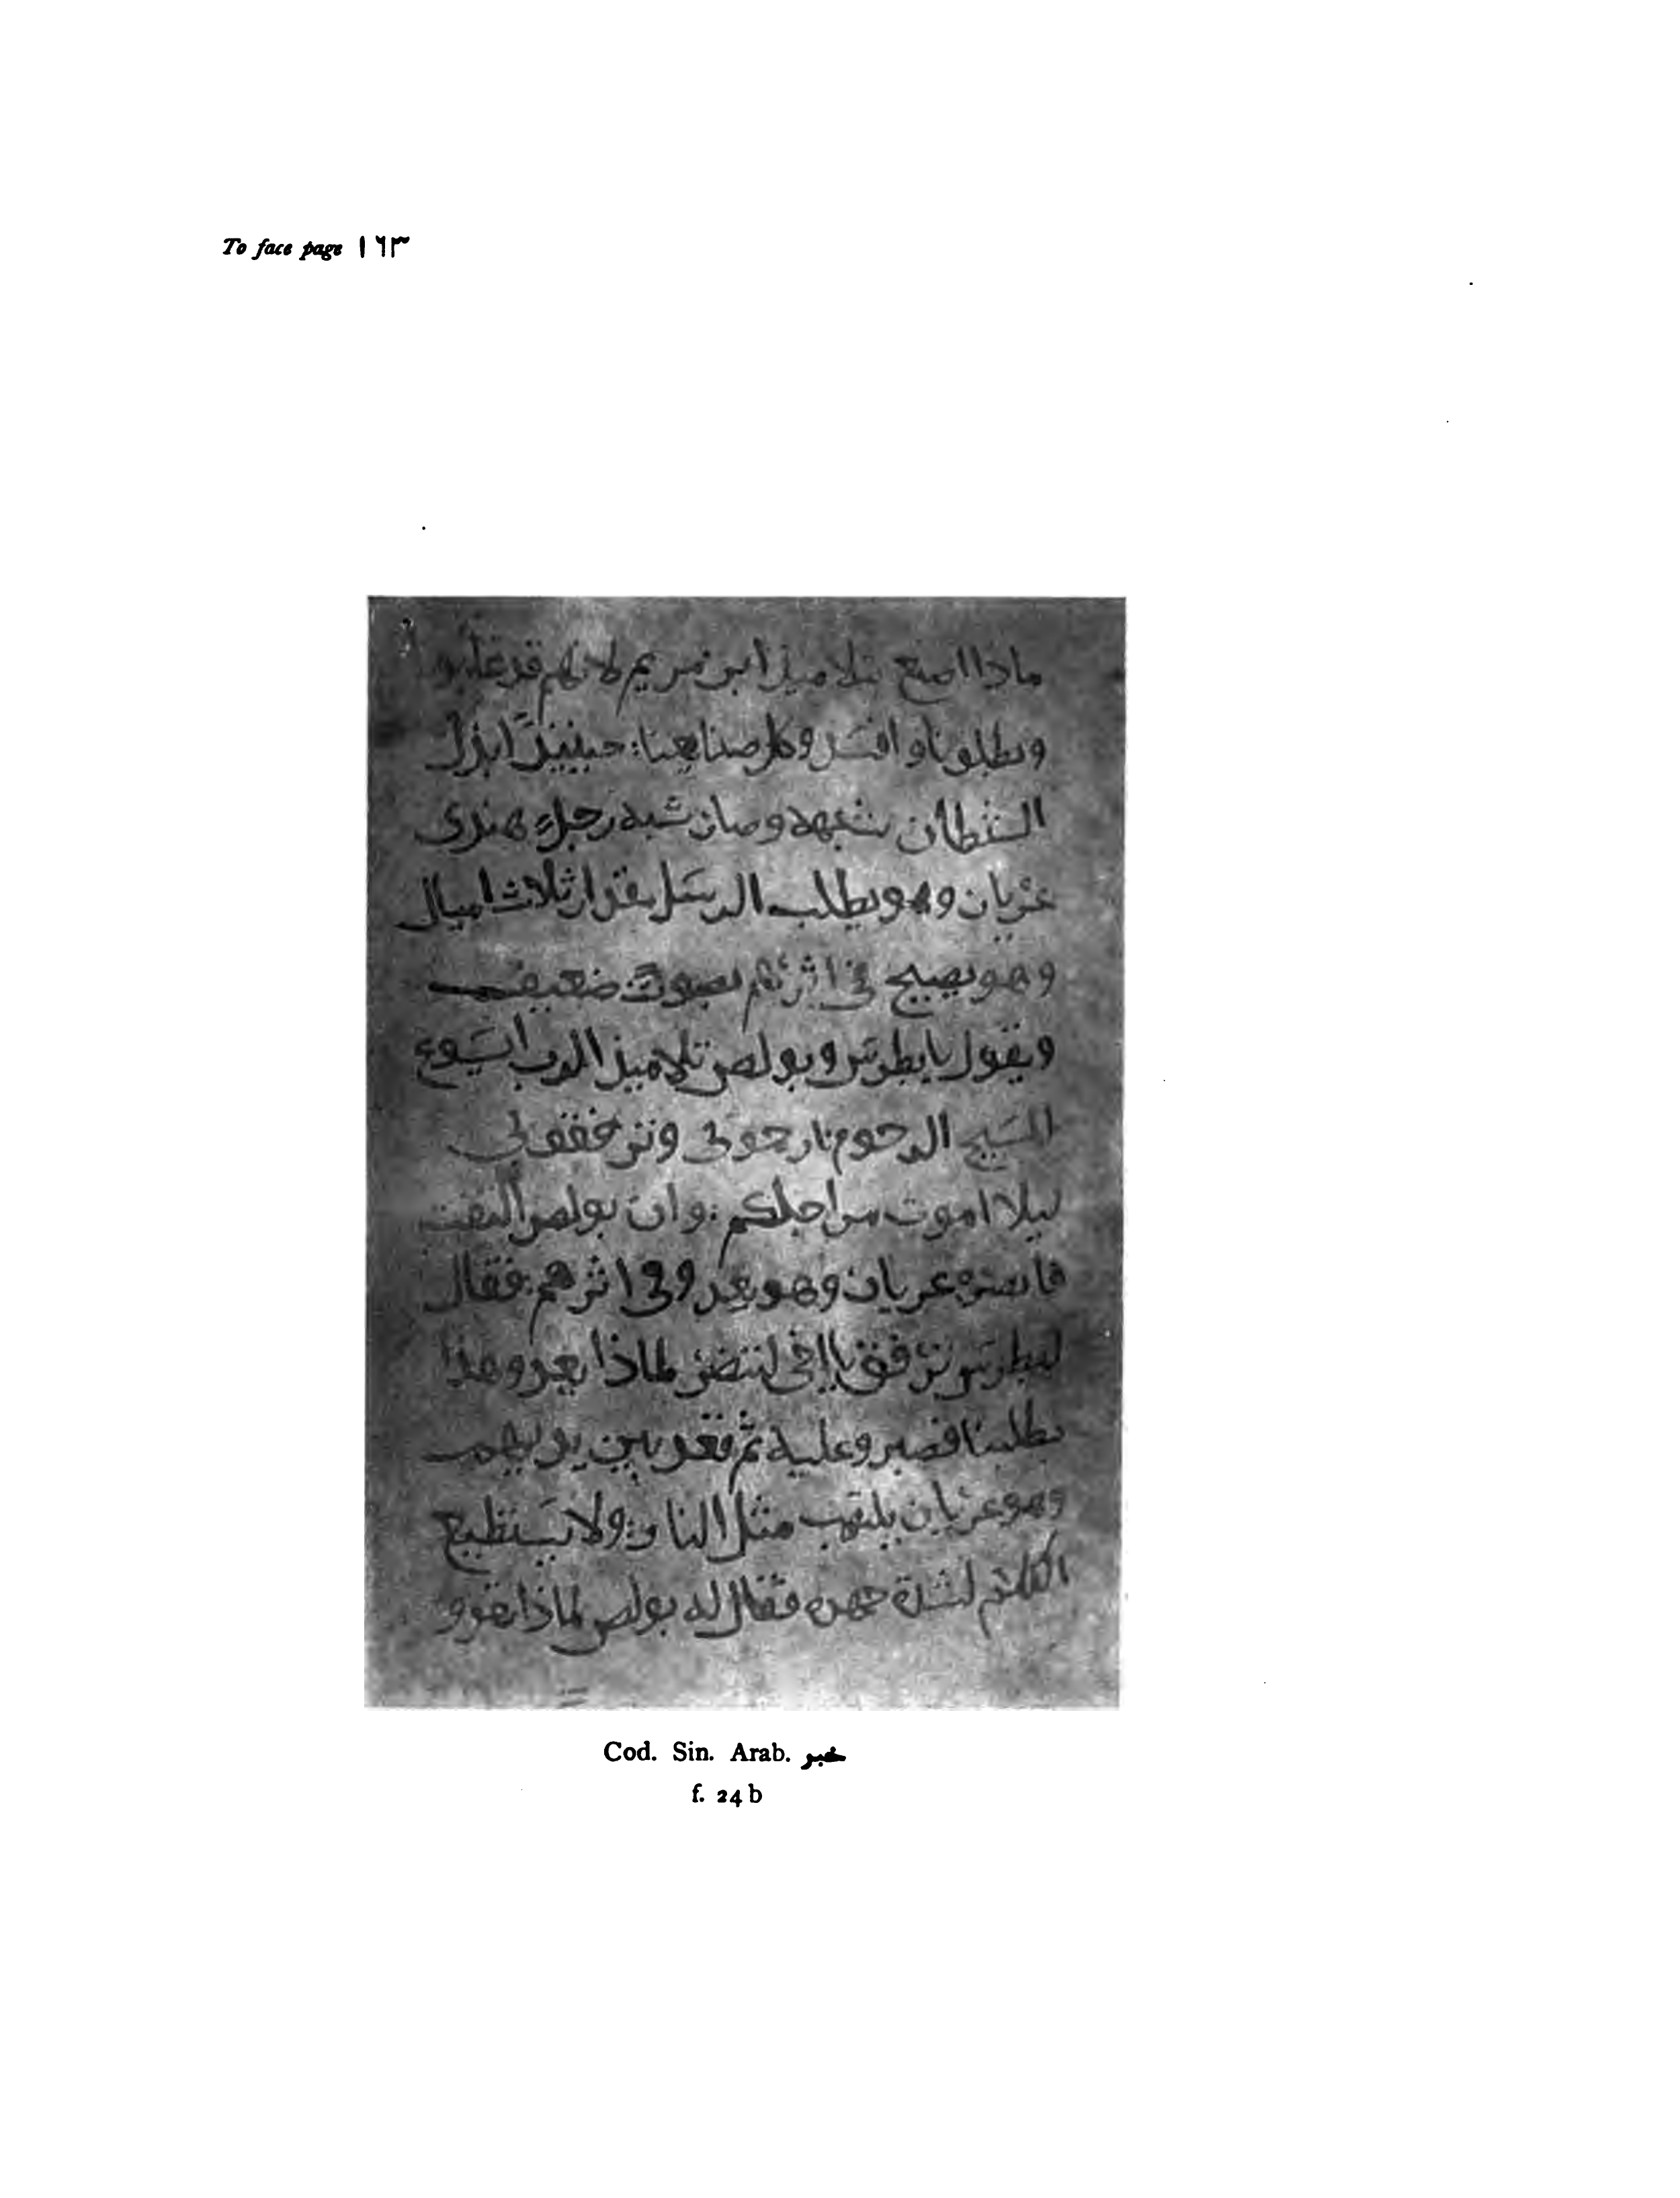 To face page ١٦٣
ماذا اصنع بتلاميذ ابن مريم لانهم قد غلبو
وبطلونا وافسد وكل صنايعنا : حينيذ ابذل
الشطان شبهه وصار شبه رجل هندى
عريان وهو يطلب الرسل بقدار ثلاث اميال
وهو يصيح في اثرهم بصوت ضعيف
ويقول يا بطرس وبولص تلاميذ الرب ايسوع
المسيح الرحوم ارحمونى وترفقو لي
ليلا اموت من اجلكم : وان بولص التفت
فابصره عريان وهو يعدو فى اثرهم : فقال
لبطرس ترفق يا اخى لننضر لماذا يعدو هذا
يطلبنا فصبرو عليه ثم قعد بين يديهم
وهو عريان يلتهب مثل النار : ولا يستطيع
الكلام لشدة جهده فقال له بولص لماذا تعدو
Cod. Sin. Arab. خبر
f. 24 b